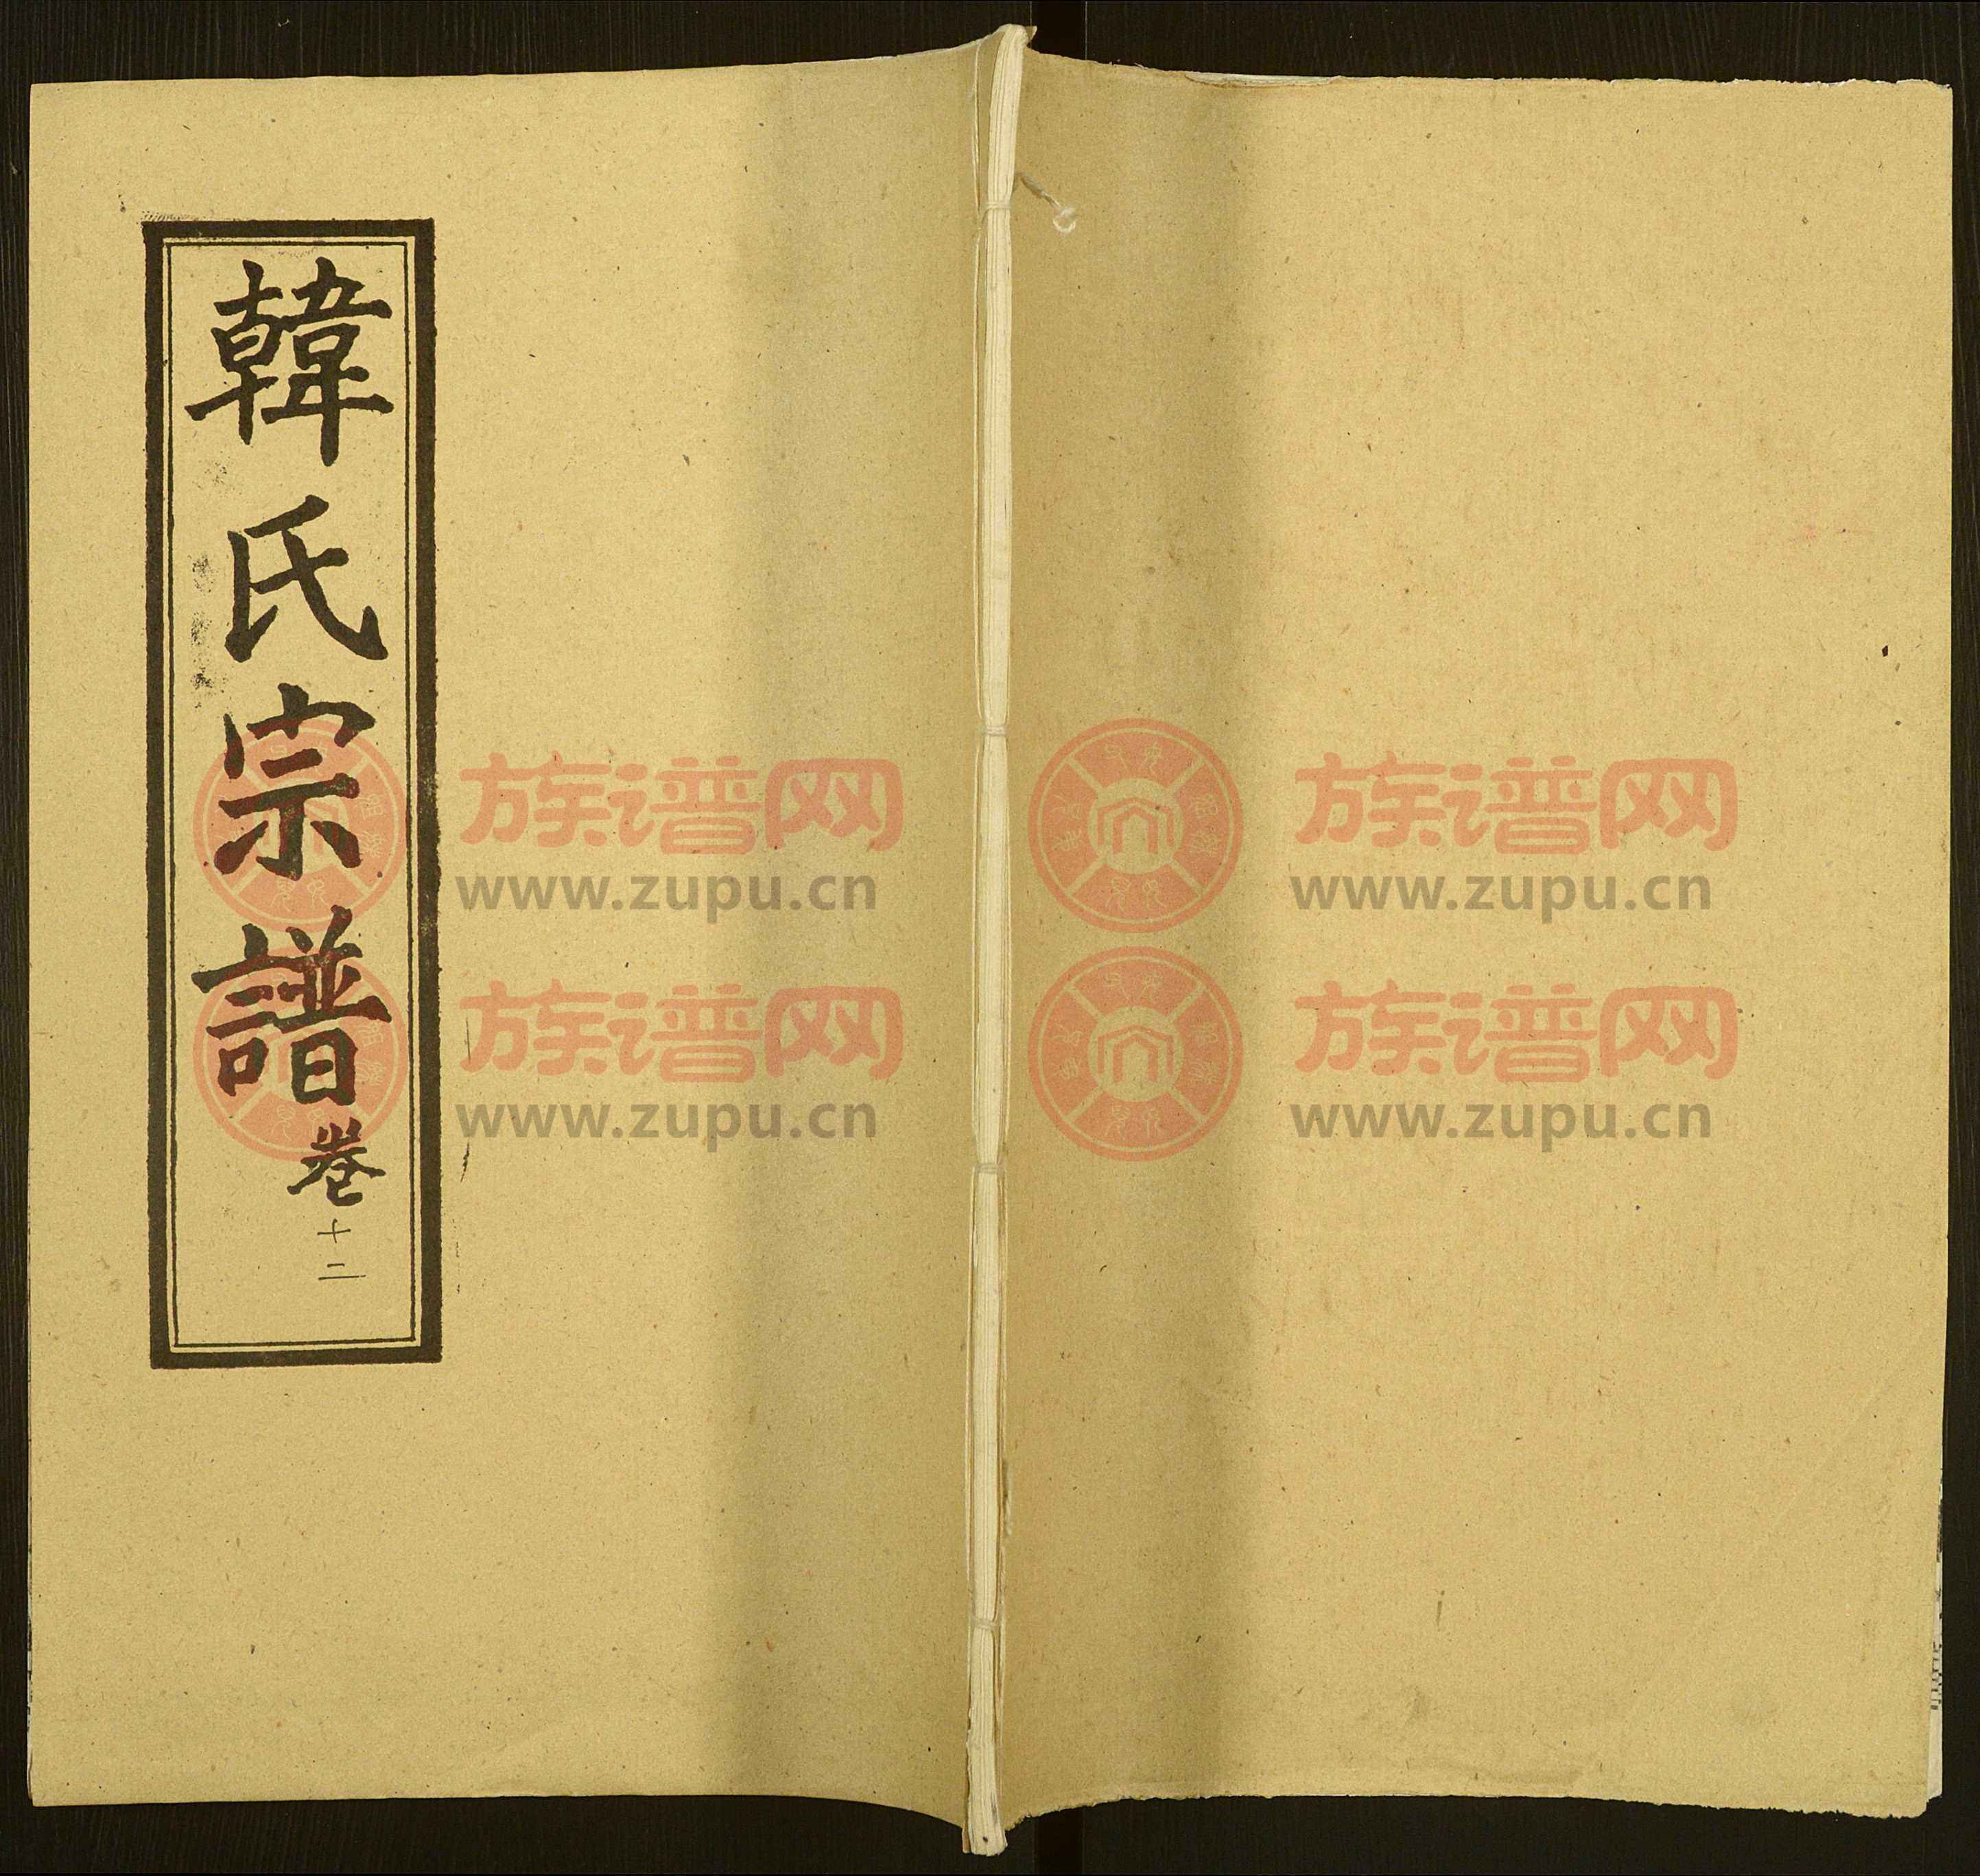 韓氏宗譜卷十二
族谱网 族谱网
www.zupu.cn www.zupu.cn
族谱网 族谱网
www.zupu.cn www.zupu.cn